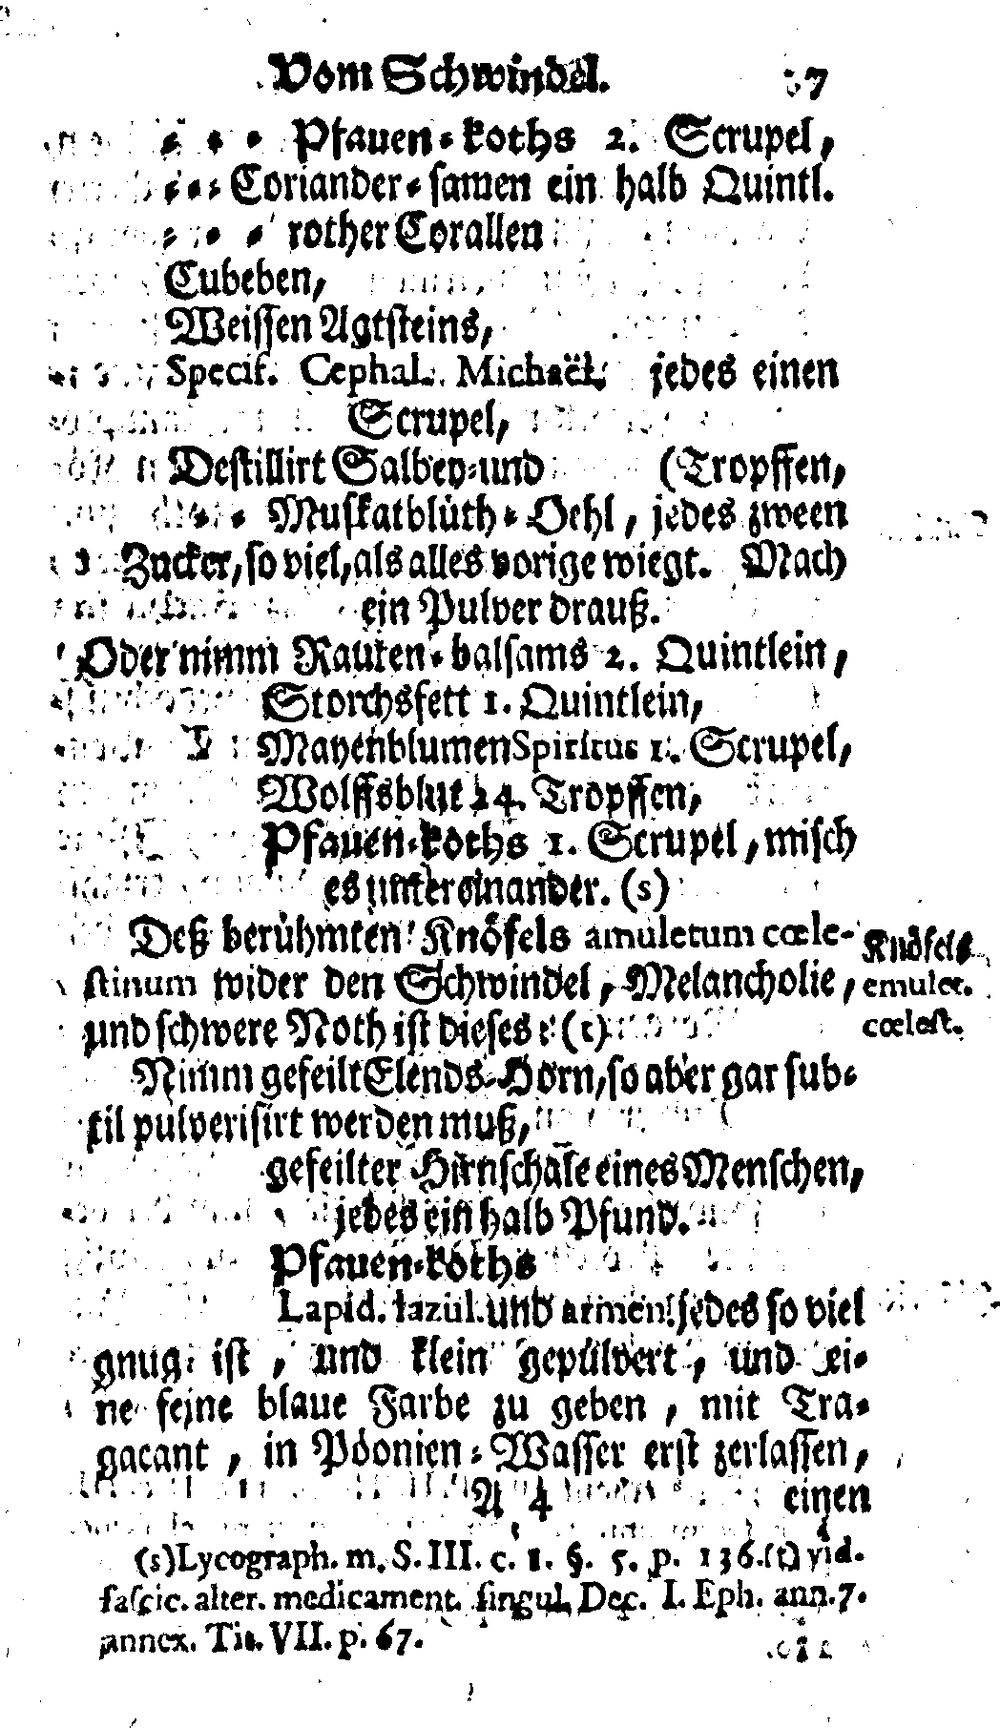 Vom Schwindel. 7
= = = Pfauen=koths 2. Scrupel,
= = = Coriander=samen ein halb Quintl.
= = = rother Corallen
Cubeben,
Weissen Agtsteins,
Specif. Cephal. Michaël. jedes einen
Scrupel,
Destillirt Salbey=und (Tropffen,
= = Muskatblüth=Oehl, jedes zween
Zucker, so viel, als alles vorige wiegt. Mach
ein Pulver drauß.
Oder nimm Rauten=balsams 2. Quintlein,
Storchsfett 1. Quintlein,
Mayenblumen Spiritus 1. Scrupel,
Wolffsblut 24. Tropffen,
Pfauen=koths 1. Scrupel, misch
es untereinander. (s)
Deß berühmten Knöfels amuletum cœle-
stinum wider den Schwindel, Melancholie,
und schwere Noth ist dieses: (t)
Knöfels
emulet.
cœlest.
Nimm gefeilt Elends=Horn, so aber gar sub=
til pulverisirt werden muß,
gefeilter Hirnschale eines Menschen,
jedes ein halb Pfund.
Pfauen=koths
Lapid. lazul. und armen. jedes so viel
gnug ist, und klein gepülvert, und ei=
ne feine blaue Farbe zu geben, mit Tra=
gacant, in Pöonien=Wasser erst zerlassen,
A 4 einen
(s) Lycograph. m. S. III. c. 1. §. 5. p. 136. (t) vid.
fascic. alter. medicament. singul. Dec. I. Eph. ann. 7.
annex. Tit. VII. p. 67.